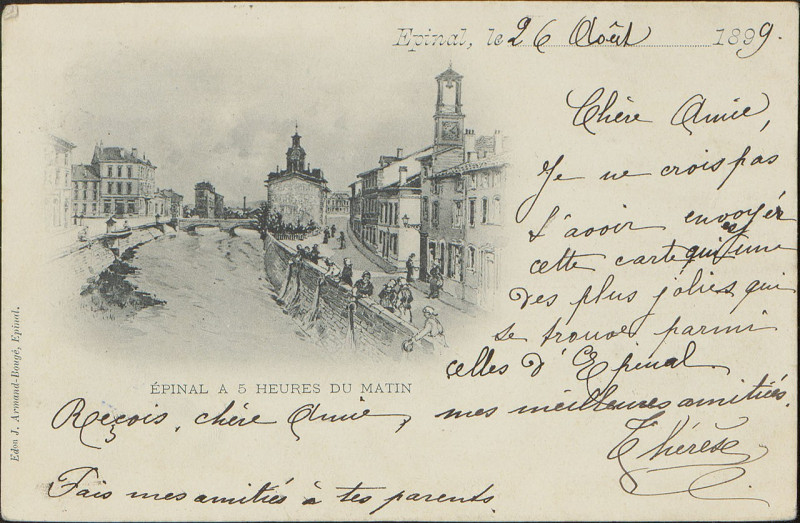 Epinal, le 26 Août 1899.
Chère Amie,
Je ne crois pas
t'avoir envoyér
cette carte qui est une
des plus jolies qui
se trouve parmi
celles d'Epinal
ÉPINAL A 5 HEURES DU MATIN
Reçois, chère Amie, mes meilleures amitiés.
Thérèse
Fais mes amitiés à tes parents.
Edon J. Armand-Bougé, Epinal.